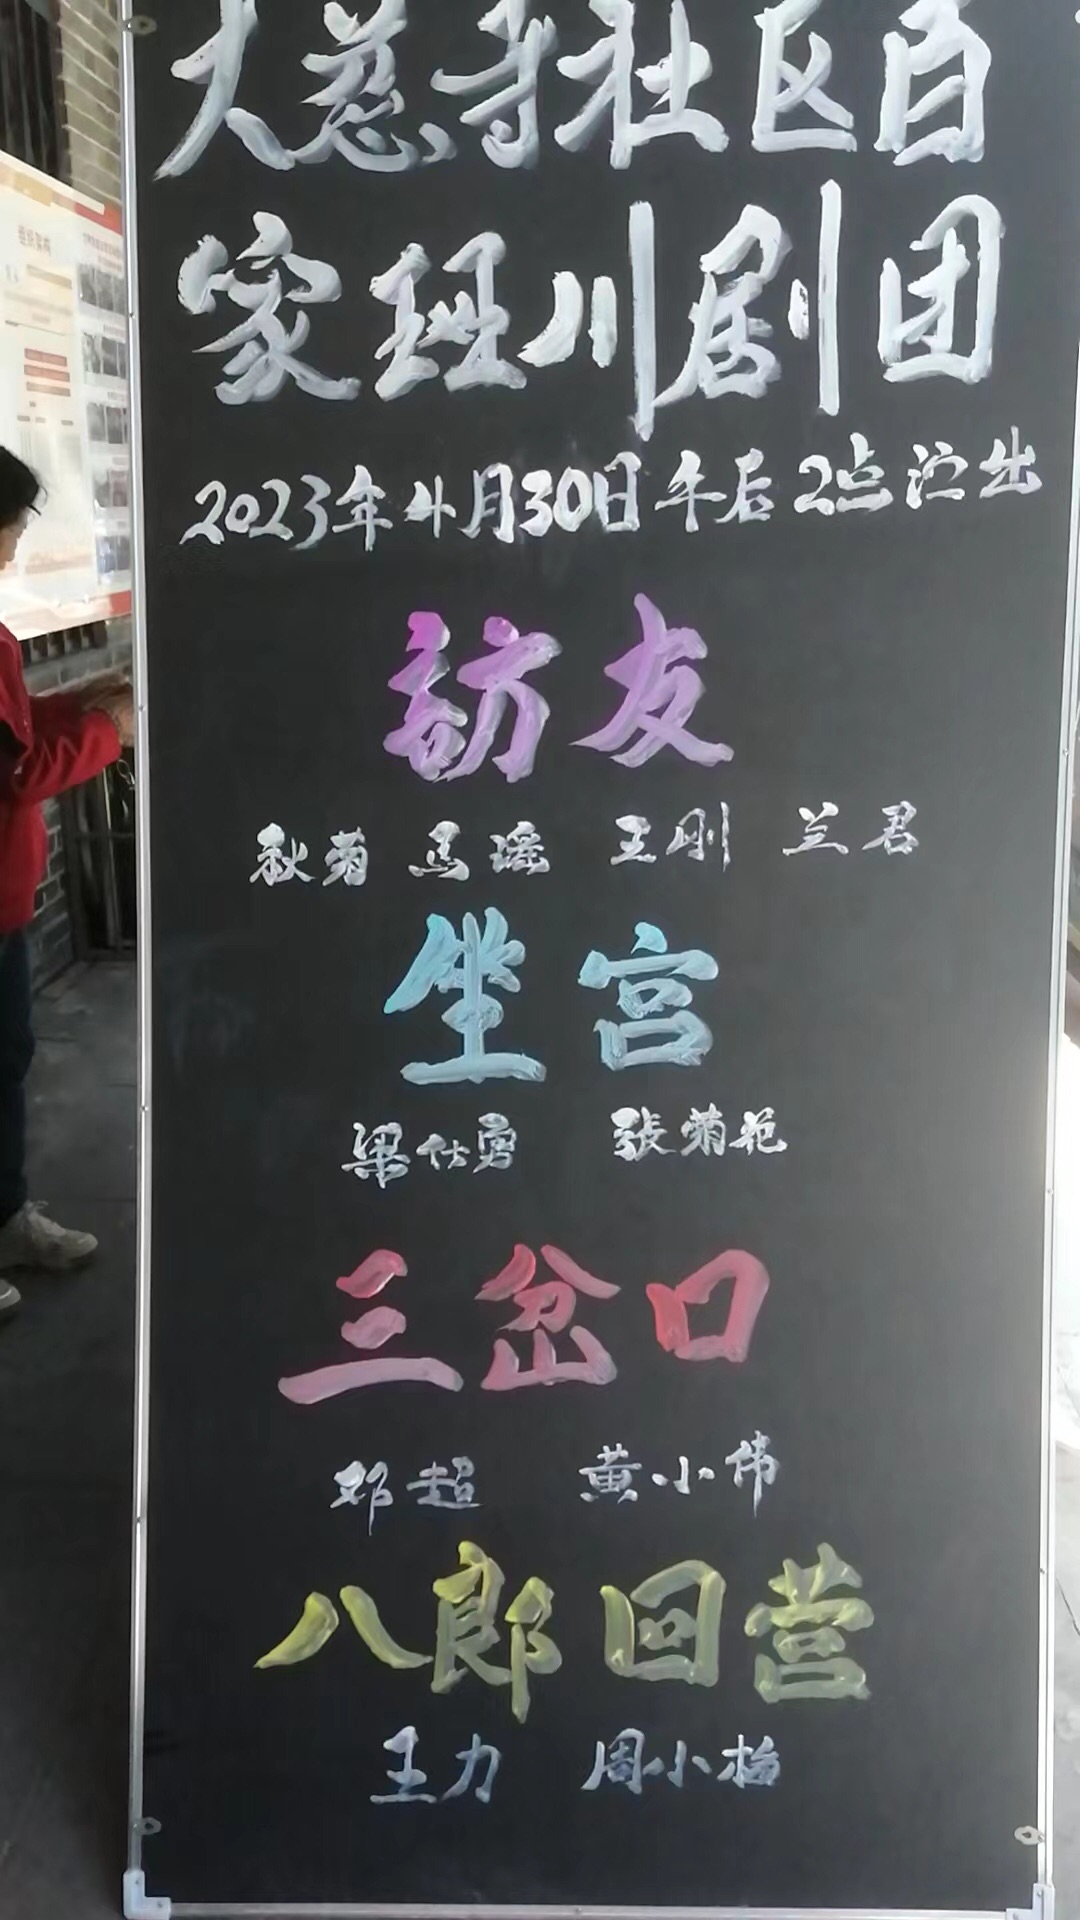 大慈寺社区百
家班川剧团
2023年4月30日午后2点演出
訪友
秋菊 馬瑶 王刚 兰君
坐宫
梁仕勇 張菊花
三岔口
邓超 黄小伟
八郎回营
王力 周小梅
组织架构